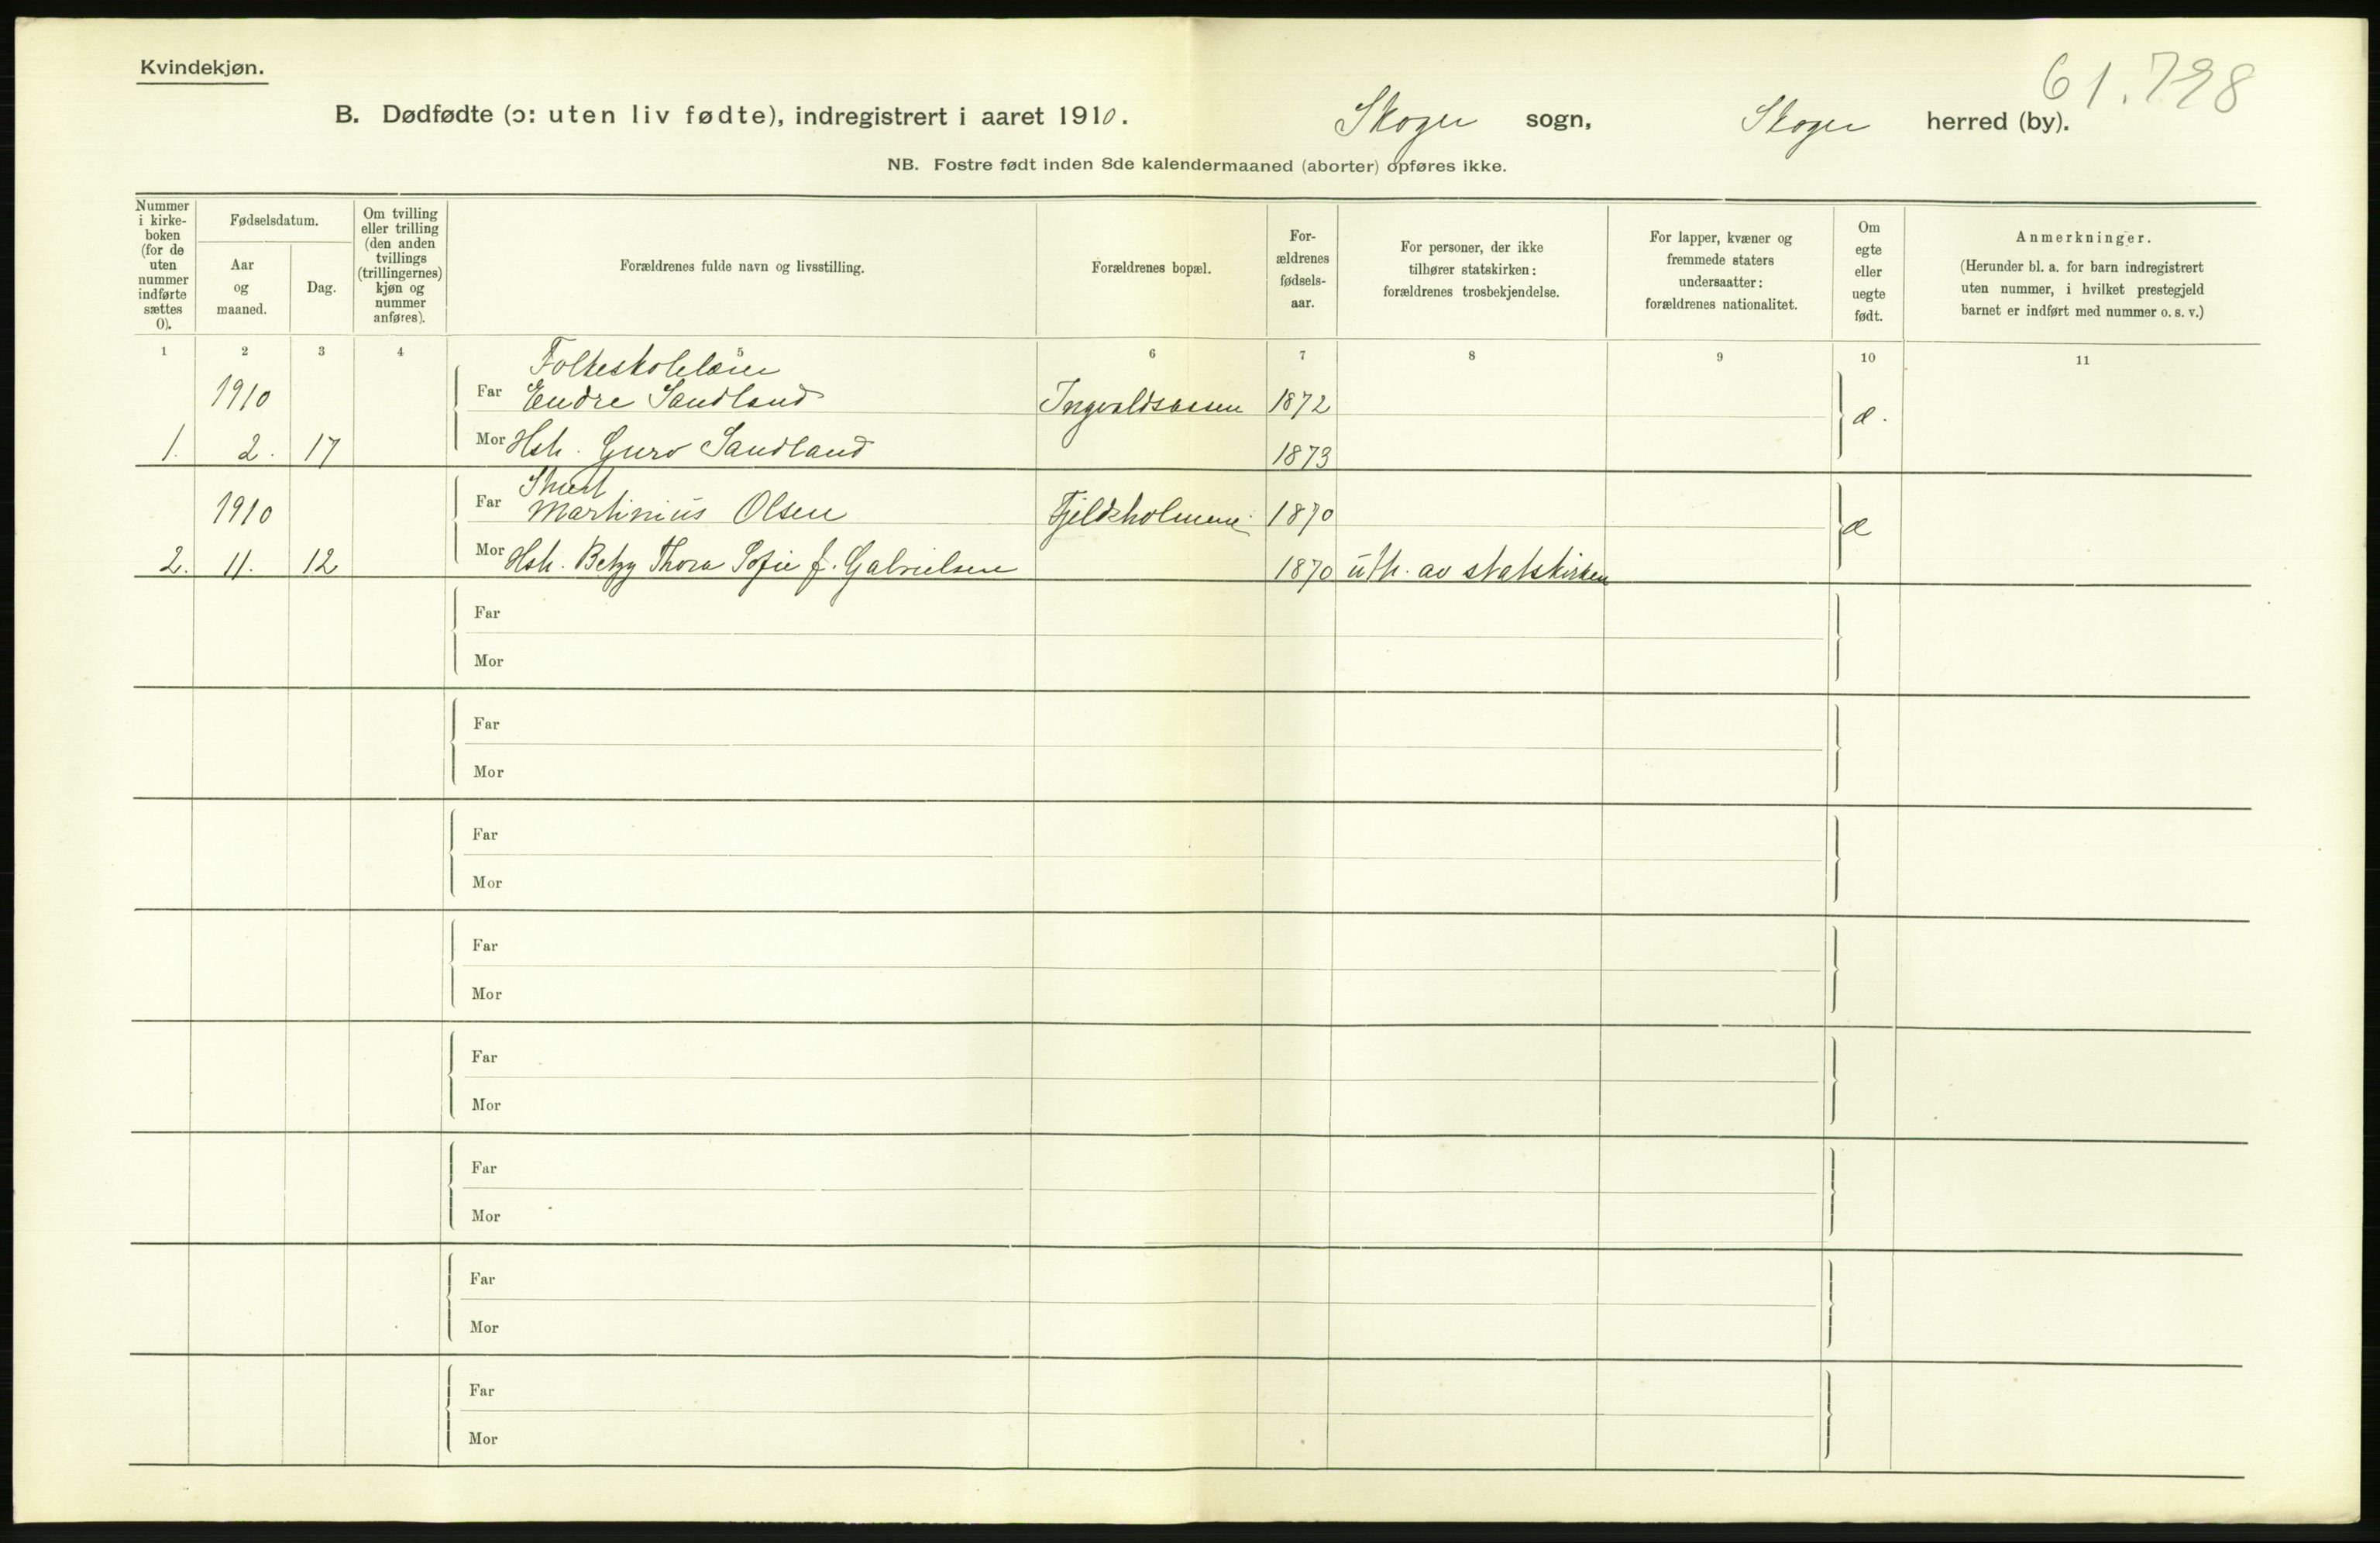 Kvindekjøn.
61.798
B. Dødfødte (ɔ: uten liv fødte), indregistrert i aaret 1910. Skoger sogn, Skoger herred (by).
NB. Fostre født inden 8de kalendermaaned (aborter) opføres ikke.
Nummer
i kirke-
boken
(for de
uten
nummer
indførte
sættes
0).
Fødselsdatum.
Aar
og
maaned.
Dag.
Om tvilling
eller trilling
(den anden
tvillings
(trillingernes)
kjøn og
nummer
anføres).
Forældrenes fulde navn og livsstilling.
Forældrenes bopæl.
For-
ældrenes
fødsels-
aar.
For personer, der ikke
tilhører statskirken:
forældrenes trosbekjendelse.
For lapper, kvæner og
fremmede staters
undersaatter:
forældrenes nationalitet.
Om
egte
eller
uegte
født.
Anmerkninger.
(Herunder bl. a. for barn indregistrert
uten nummer, i hvilket prestegjeld
barnet er indført med nummer o. s. v.)
1 2 3 4 5 6 7 8 9 10 11
Folkeskolelærer
1910 Far Endre Sandland Ingvaldsaasen 1872 æ.
1. 2. 17 Mor Hst. Guro Sandland 1873
1910 Far Martinius Olsen Fjeldsholmene 1870 æ
2. 11. 12 Mor Hst. Betzy Thora Sofie f. Gabrielsen 1870 utr. av statskirken
Far
Mor
Far
Mor
Far
Mor
Far
Mor
Far
Mor
Far
Mor
Far
Mor
Far
Mor